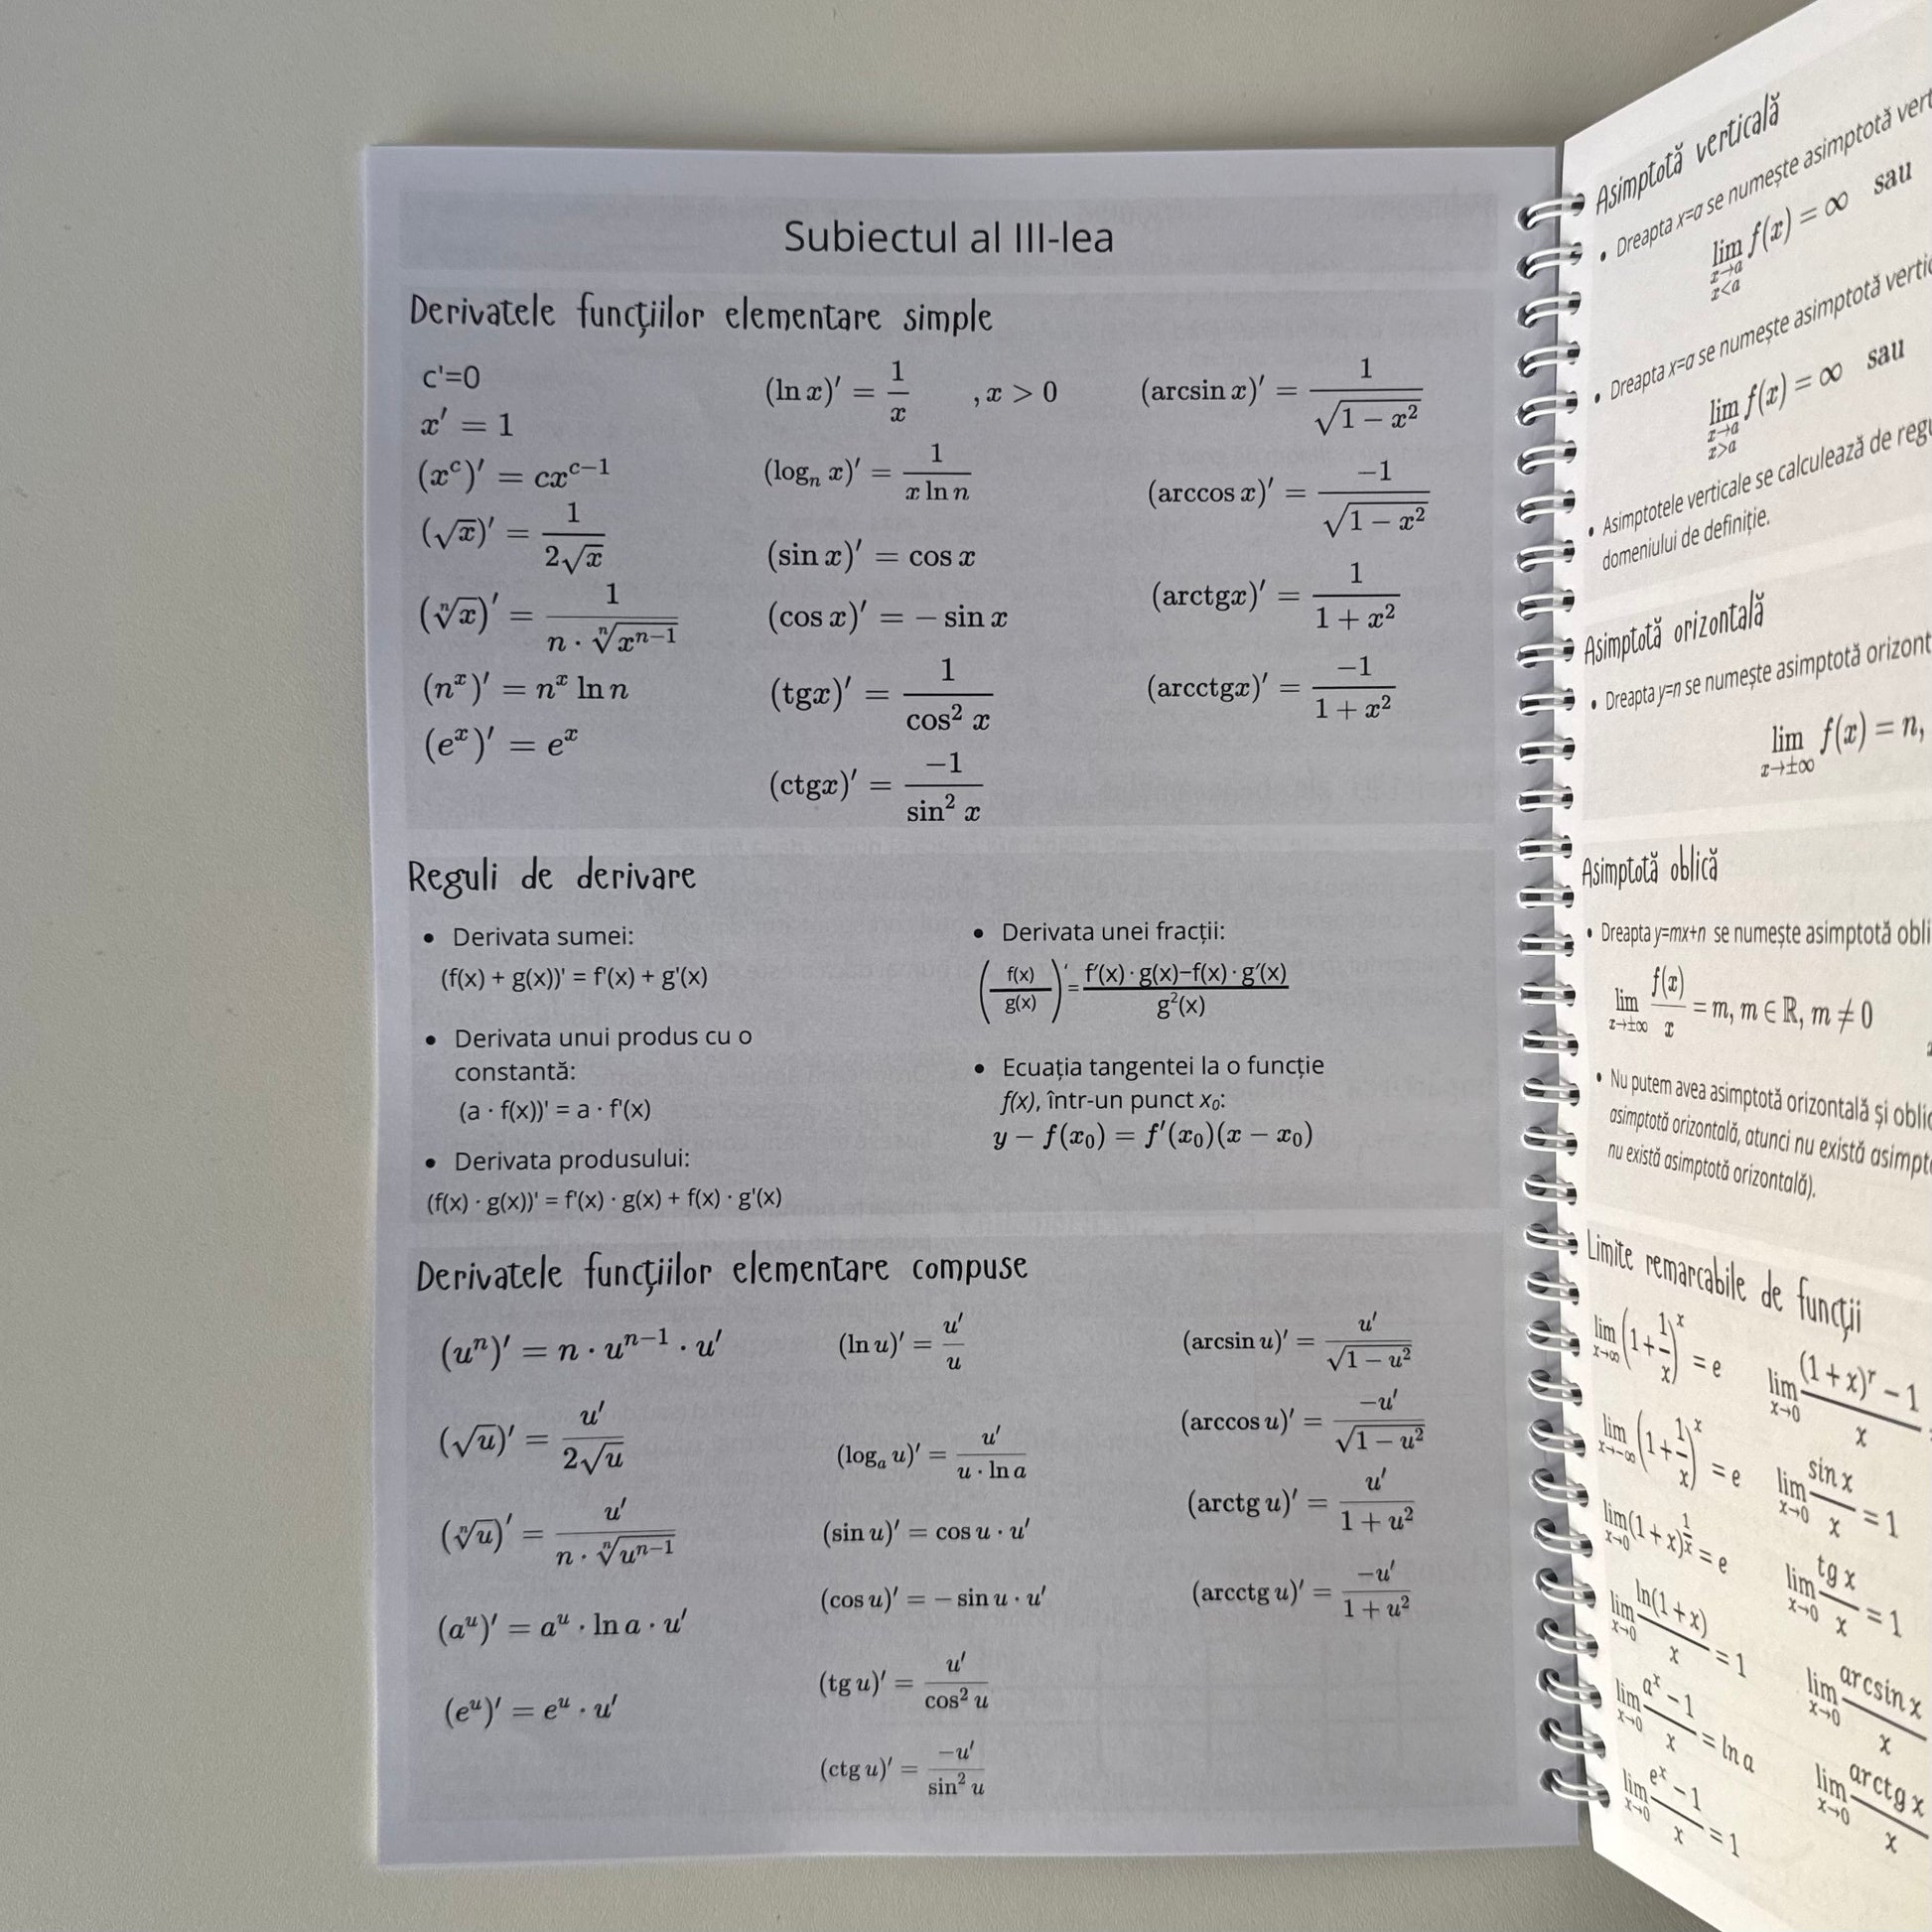 Subiectul al III-lea
Derivatele funcțiilor elementare simple
c'=0
x′ = 1
(xᶜ)′ = cxᶜ⁻¹
(√x)′ = 1/(2√x)
(ⁿ√x)′ = 1/(n · ⁿ√xⁿ⁻¹)
(nˣ)′ = nˣ ln n
(eˣ)′ = eˣ
(ln x)′ = 1/x , x > 0
(logₙ x)′ = 1/(x ln n)
(sin x)′ = cos x
(cos x)′ = − sin x
(tgx)′ = 1/cos² x
(ctgx)′ = −1/sin² x
(arcsin x)′ = 1/√(1 − x²)
(arccos x)′ = −1/√(1 − x²)
(arctgx)′ = 1/(1 + x²)
(arcctgx)′ = −1/(1 + x²)
Reguli de derivare
• Derivata sumei:
(f(x) + g(x))' = f'(x) + g'(x)
• Derivata unui produs cu o
constantă:
(a · f(x))' = a · f'(x)
• Derivata produsului:
(f(x) · g(x))' = f'(x) · g(x) + f(x) · g'(x)
• Derivata unei fracții:
(f(x)/g(x))′ = (f′(x) · g(x)−f(x) · g′(x))/g²(x)
• Ecuația tangentei la o funcție
f(x), într-un punct x₀:
y − f(x₀) = f′(x₀)(x − x₀)
Derivatele funcțiilor elementare compuse
(uⁿ)′ = n · uⁿ⁻¹ · u′
(√u)′ = u′/(2√u)
(ⁿ√u)′ = u′/(n · ⁿ√uⁿ⁻¹)
(aᵘ)′ = aᵘ · ln a · u′
(eᵘ)′ = eᵘ · u′
(ln u)′ = u′/u
(logₐ u)′ = u′/(u · ln a)
(sin u)′ = cos u · u′
(cos u)′ = − sin u · u′
(tg u)′ = u′/cos² u
(ctg u)′ = −u′/sin² u
(arcsin u)′ = u′/√(1 − u²)
(arccos u)′ = −u′/√(1 − u²)
(arctg u)′ = u′/(1 + u²)
(arcctg u)′ = −u′/(1 + u²)
Asimptotă verticală
• Dreapta x=a se numește asimptotă
lim x→a x<a f(x) = ∞ sau
• Dreapta x=a se numește asimptotă
lim x→a x>a f(x) = ∞ sau
• Asimptotele verticale se calculează de
domeniului de definiție.
Asimptotă orizontală
• Dreapta y=n se numește asimptotă
lim x→±∞ f(x) = n,
Asimptotă oblică
• Dreapta y=mx+n se numește asimptotă
lim x→±∞ f(x)/x = m, m ∈ ℝ, m ≠ 0
• Nu putem avea asimptotă orizontală și
asimptotă orizontală, atunci nu există
nu există asimptotă orizontală).
Limite remarcabile de funcții
lim x→∞ (1+1/x)ˣ = e
lim x→−∞ (1+1/x)ˣ = e
lim x→0 (1+x)^(1/x) = e
lim x→0 ln(1+x)/x = 1
lim x→0 (aˣ − 1)/x = ln a
lim x→0 (eˣ − 1)/x = 1
lim x→0 ((1+x)ʳ − 1)/x
lim x→0 sin x/x = 1
lim x→0 tg x/x = 1
lim x→0 arcsin x/x
lim x→0 arctg x/x